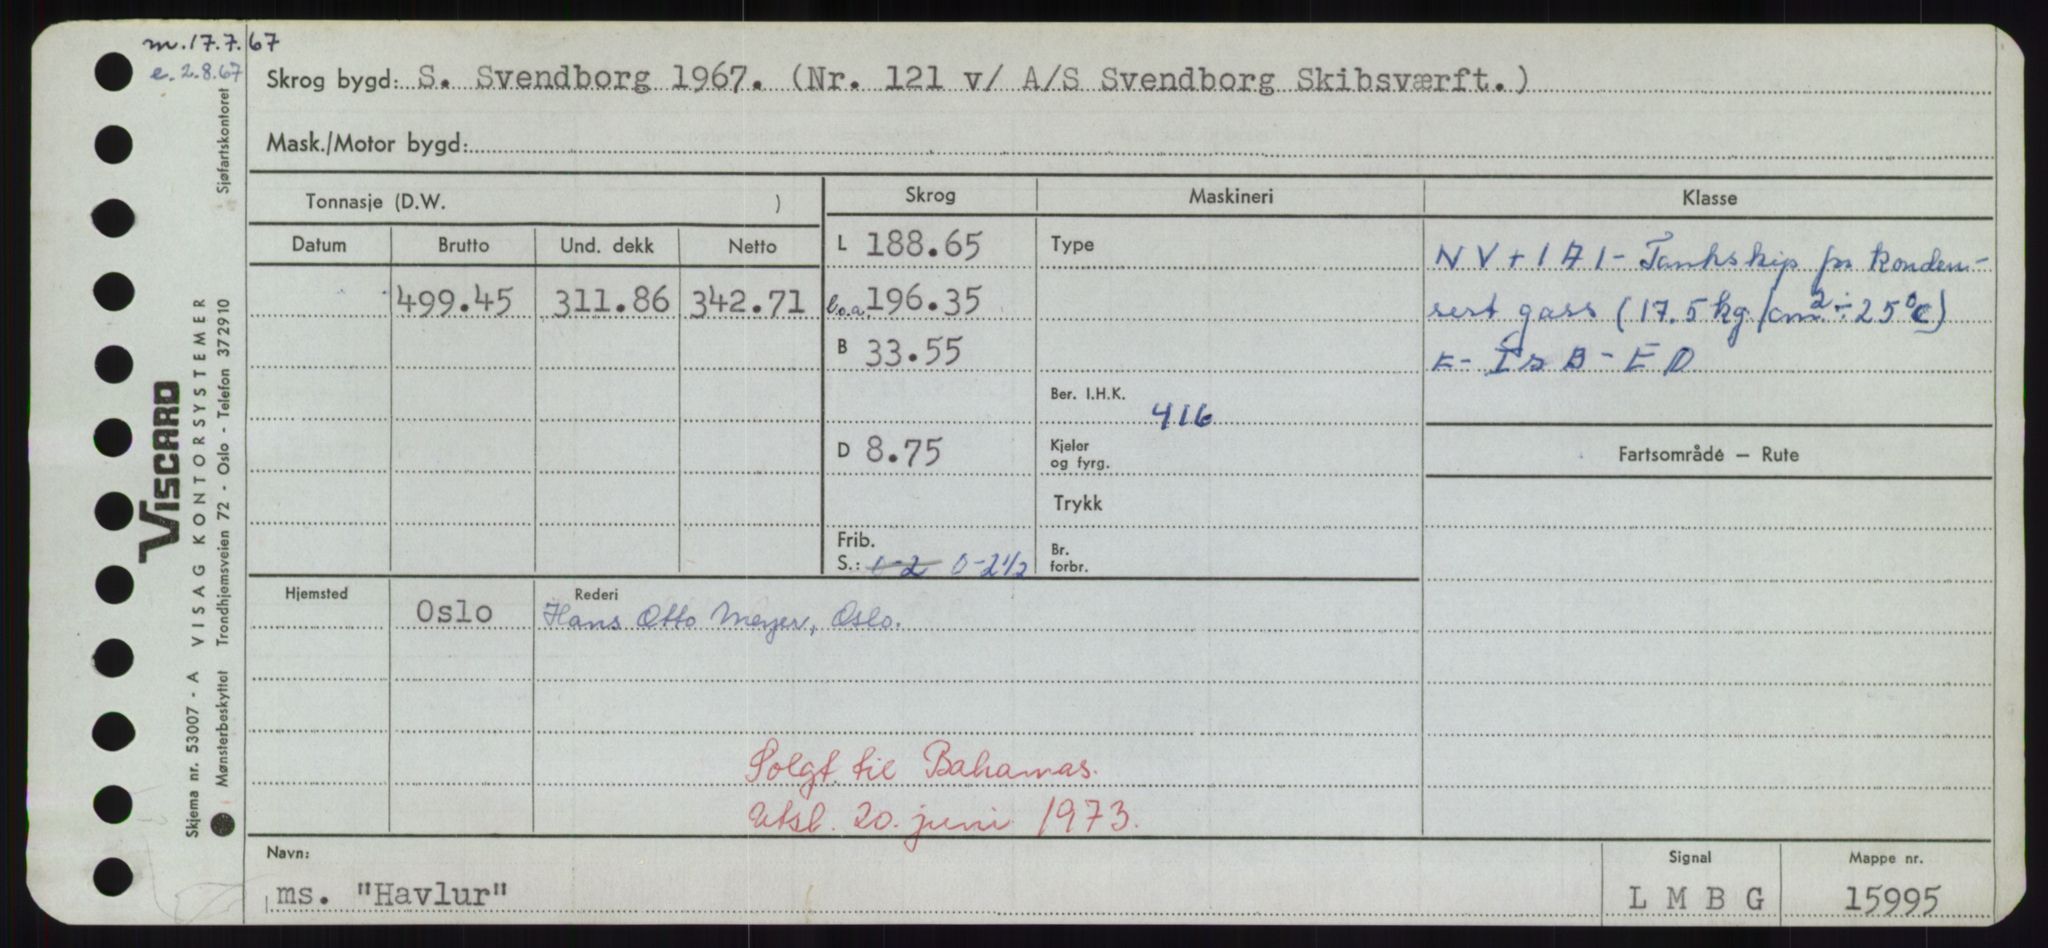 m. 17.7.67
e. 2.8.67
Skrog bygd: S. Svendborg 1967. (Nr. 121 v/ A/S Svendborg Skibsværft.)
Mask./Motor bygd:
Tonnasje (D.W. )
Skrog
Maskineri
Klasse
Datum Brutto Und. dekk Netto
499.45 311.86 342.71
L 188.65
l.o.a. 196.35
B 33.55
D 8.75
Frib.
S.: 0-2 0-2 1/2
Type
Ber. I.H.K.
416
Kjeler
og fyrg.
Trykk
Br.
forbr.
NV+1A1- Tankskip for konden-
sert gass (17.5 kg/cm² ÷25°C)
E- Is B - EO
Fartsområde — Rute
Hjemsted
Oslo
Rederi
Hans Otto Meyer, Oslo.
Solgt til Bahamas.
Utsl. 20. juni 1973.
Navn:
ms. "Havlur"
Signal
L M B G
Mappe nr.
15995
VISCARD
VISAG KONTORSYSTEMER
Skjema nr. 53007 - A
Mønsterbeskyttet
Trondhjemsveien 72 - Oslo - Telefon 372910
Sjøfartskontoret